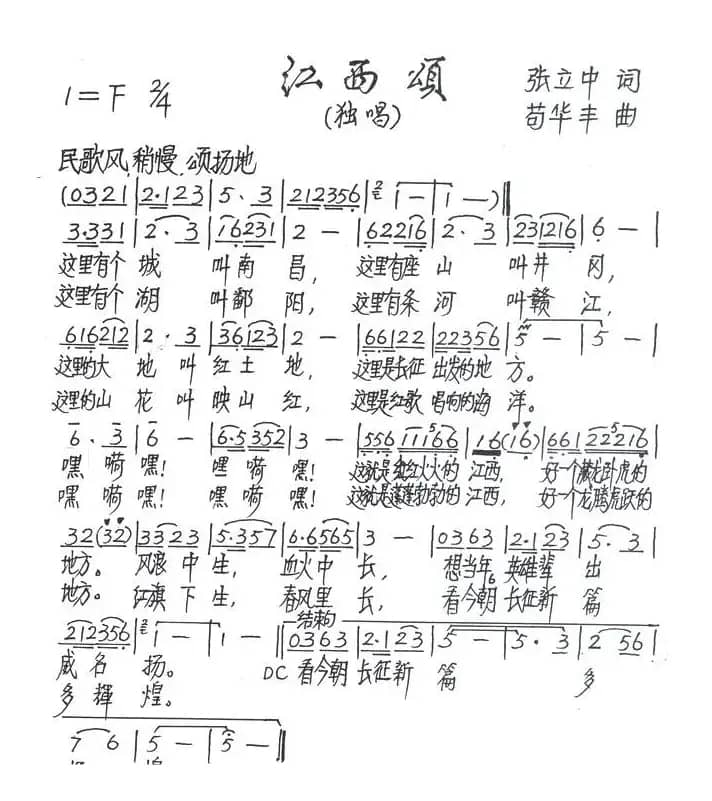 江西頌
(独唱)
1=F 2/4
张立中 词
苟华丰 曲
民歌风 稍慢 颂扬地
(0321|2·123|5· 3|212356|1—|1—)‖
3·331|2· 3|16231|2 —|62216|2· 3|231216|6 —|
这里有个 城 叫南 昌， 这里有座 山 叫井 冈，
这里有个 湖 叫鄱 阳， 这里有条 河 叫赣 江，
616212|2· 3|36123|2 —|66122|22356|5 —|5 —|
这里的大 地 叫 红 土 地， 这里是长征 出发的地 方。
这里的山 花 叫 映 山 红， 这里是红歌 唱响的海 洋。
6· 3|6 —|6·5352|3 —|556 111566|16(16)|661 225216|
嘿 嗬 嘿！ 嘿 嗬 嘿！ 这就是红红火火的 江西， 好一个藏龙卧虎的
嘿 嗬 嘿！ 嘿 嗬 嘿！ 这就是蓬蓬勃勃的 江西， 好一个龙腾虎跃的
32(32)|3323|5·357|6·6565|3 —|0363|2·123|5· 3|
地方。 风浪 中 生， 血火中 长， 想当年 英雄辈 出
地方。 红旗 下 生， 春风里 长， 看今朝 长征新 篇
结束句
212356|1—|1—‖0363|2·123|5 —|5· 3|2 56|
威 名 扬。 DC 看今朝 长征新 篇 多
多 輝 煌。
7 6|5 —|5 —‖